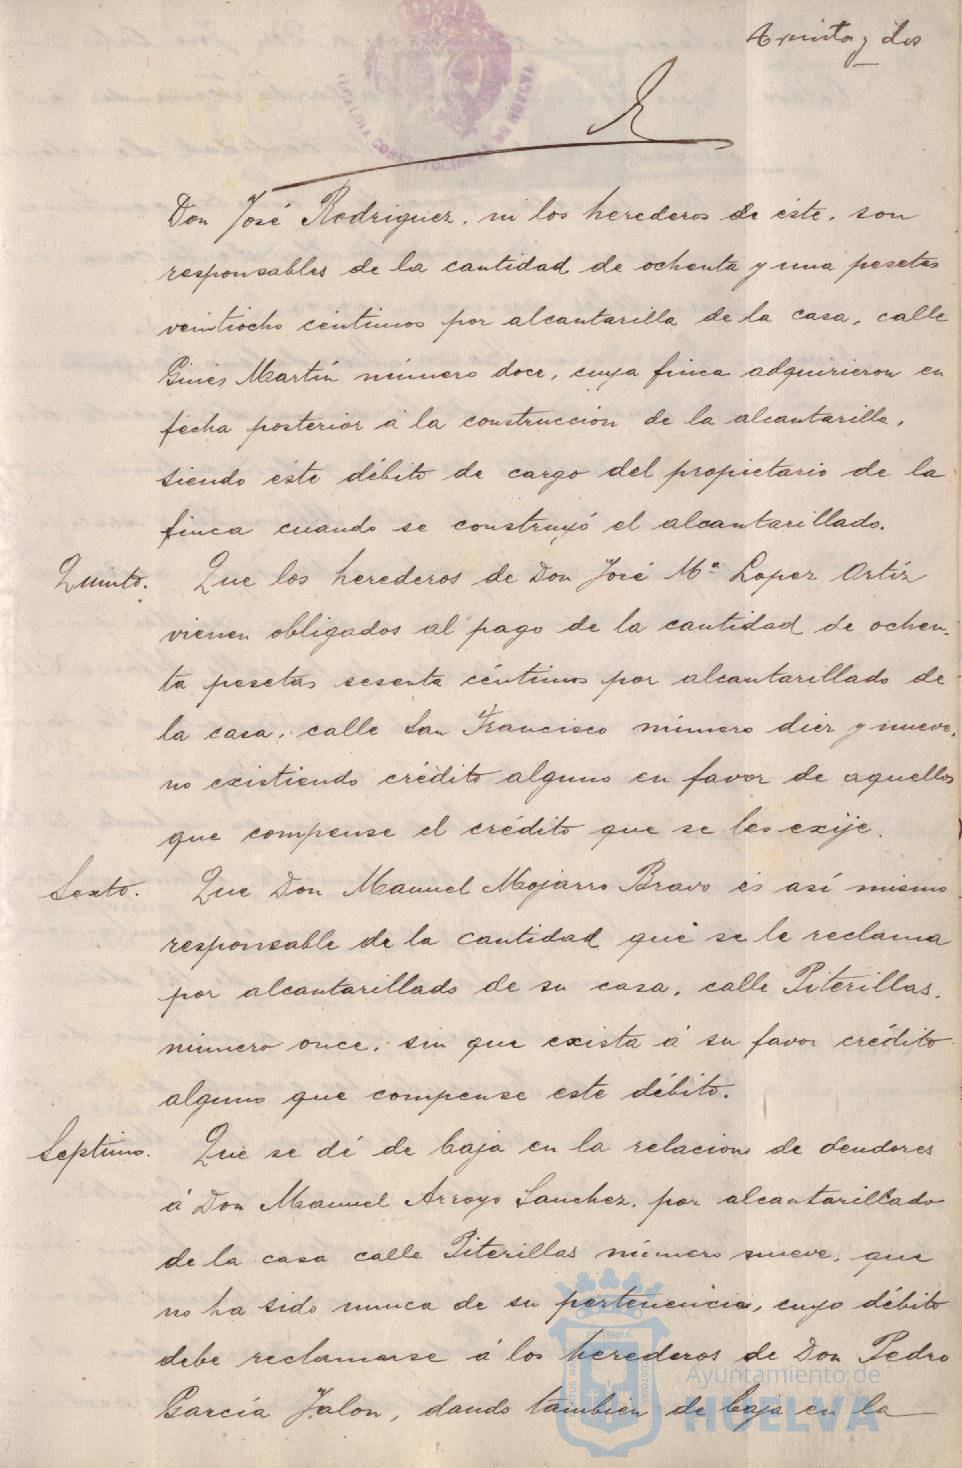 treinta y dos
Don José Rodriguez, ni los herederos de éste, son
responsables de la cantidad de ochenta y una pesetas
veintiocho céntimos por alcantarilla de la casa, calle
Ginés Martín número doce, cuya finca adquirieron en
fecha posterior á la construcción de la alcantarilla,
siendo éste débito de cargo del propietario de la
finca cuando se construyó el alcantarillado.
Quinto. Que los herederos de Don José Mª Lopez Ortíz
vienen obligados al pago de la cantidad de ochen-
ta pesetas sesenta céntimos por alcantarillado de
la casa, calle San Francisco número diez y nueve,
no existiendo crédito alguno en favor de aquellos
que compense el crédito que se les exije.
Sexto. Que Don Manuel Mojarro Bravo és así mismo
responsable de la cantidad que se le reclama
por alcantarillado de su casa, calle Piterillas,
número once, sin que exista á su favor crédito
alguno que compense este débito.
Septimo. Que se dé de baja en la relacion de deudores
á Don Manuel Arroyo Sanchez, por alcantarillado
de la casa calle Piterillas número nueve, que
no ha sido nunca de su pertenencia, cuyo débito
debe reclamarse á los herederos de Don Pedro
García Jalon, dando tambien de baja en la
Ayuntamiento de
HUELVA